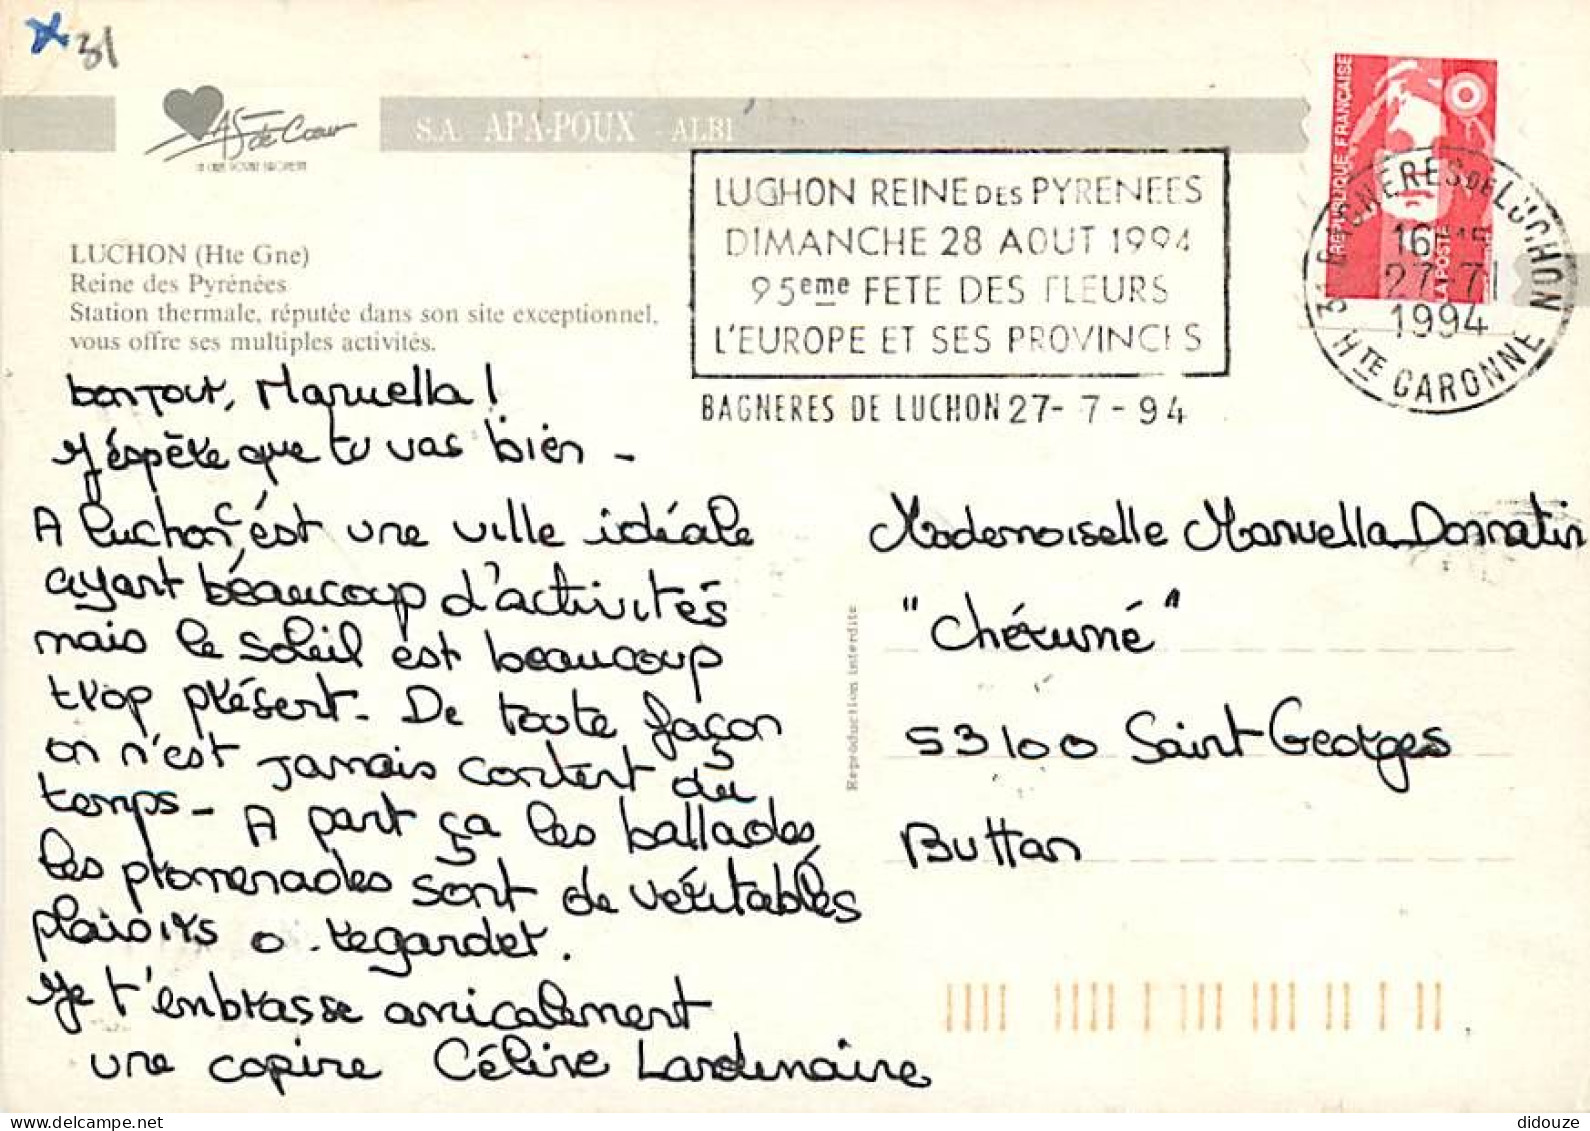 31
AS de Cœur
S.A. APA-POUX - ALBI
RÉPUBLIQUE FRANÇAISE
LA POSTE
LUCHON REINE DES PYRENEES
DIMANCHE 28 AOUT 1994
95eme FETE DES FLEURS
L'EUROPE ET SES PROVINCES
BAGNERES DE LUCHON 27-7-94
31 BAGNERES DE LUCHON
27-7
1994
HTE GARONNE
LUCHON (Hte Gne)
Reine des Pyrénées
Station thermale, réputée dans son site exceptionnel,
vous offre ses multiples activités.
bonjour, Manuella !
J'éspère que tu vas bien -
A Luchon c'ést une ville idéale
ayant béaucoup d'activités
mais le soleil est beaucoup
trop présent - De toute façon
on n'est jamais content du
temps - A part ça les ballades,
les promenades sont de véritables
plaisirs a regarder.
Je t'embrasse amicalement
une copine Céline Lardenaire
Mademoiselle Manuella Donnatin
"Chérumé"
53100 Saint Georges
Buttan
Reproduction interdite
didouze